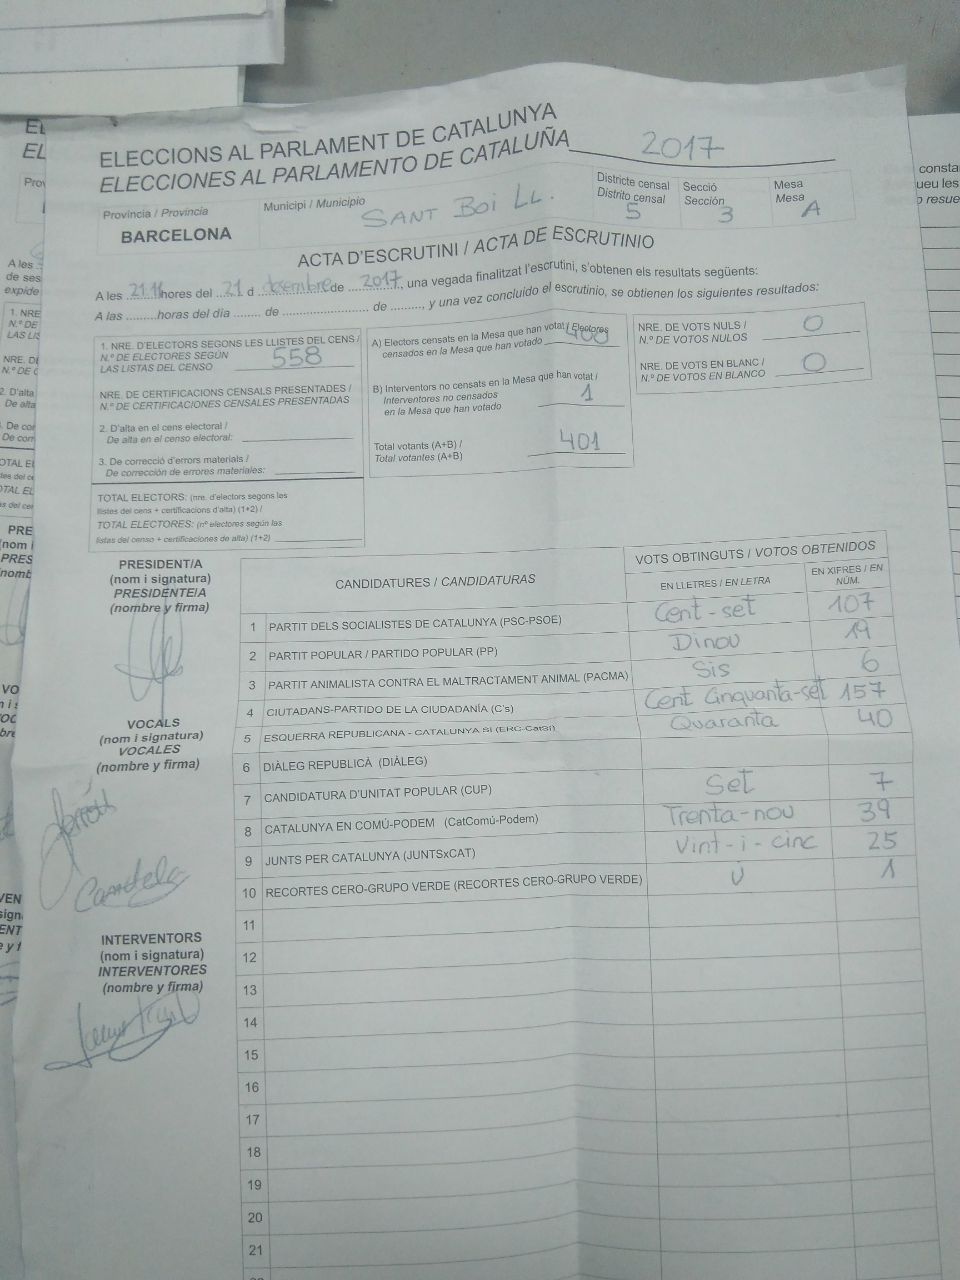 ELECCIONS AL PARLAMENT DE CATALUNYA
ELECCIONES AL PARLAMENTO DE CATALUÑA 2017
Província / Provincia
BARCELONA
Municipi / Municipio
SANT BOI LL.
Districte censal
Distrito censal
5
Secció
Sección
3
Mesa
Mesa
A
ACTA D'ESCRUTINI / ACTA DE ESCRUTINIO
A les 21.11 hores del 21 d desembre de 2017, una vegada finalitzat l'escrutini, s'obtenen els resultats següents:
A las ......... horas del día ........ de ........................ de ........., y una vez concluido el escrutinio, se obtienen los siguientes resultados:
1. NRE. D'ELECTORS SEGONS LES LLISTES DEL CENS /
N.º DE ELECTORES SEGÚN
LAS LISTAS DEL CENSO 558
NRE. DE CERTIFICACIONS CENSALS PRESENTADES /
N.º DE CERTIFICACIONES CENSALES PRESENTADAS
2. D'alta en el cens electoral /
De alta en el censo electoral:
3. De correcció d'errors materials /
De corrección de errores materiales:
TOTAL ELECTORS: (nre. d'electors segons les
llistes del cens + certificacions d'alta) (1+2) /
TOTAL ELECTORES: (nº electores según las
listas del censo + certificaciones de alta) (1+2)
A) Electors censats en la Mesa que han votat / Electores
censados en la Mesa que han votado 400
B) Interventors no censats en la Mesa que han votat /
Interventores no censados
en la Mesa que han votado 1
Total votants (A+B) /
Total votantes (A+B) 401
NRE. DE VOTS NULS /
N.º DE VOTOS NULOS 0
NRE. DE VOTS EN BLANC /
N.º DE VOTOS EN BLANCO 0
PRESIDENT/A
(nom i signatura)
PRESIDENTE/A
(nombre y firma)
VOCALS
(nom i signatura)
VOCALES
(nombre y firma)
Candela
INTERVENTORS
(nom i signatura)
INTERVENTORES
(nombre y firma)
CANDIDATURES / CANDIDATURAS
VOTS OBTINGUTS / VOTOS OBTENIDOS
EN LLETRES / EN LETRA
EN XIFRES / EN
NÚM.
1 PARTIT DELS SOCIALISTES DE CATALUNYA (PSC-PSOE) Cent-set 107
2 PARTIT POPULAR / PARTIDO POPULAR (PP) Dinou 19
3 PARTIT ANIMALISTA CONTRA EL MALTRACTAMENT ANIMAL (PACMA) Sis 6
4 CIUTADANS-PARTIDO DE LA CIUDADANÍA (C's) Cent Cinquanta-set 157
5 ESQUERRA REPUBLICANA - CATALUNYA SÍ (ERC-CatSí) Quaranta 40
6 DIÀLEG REPUBLICÀ (DIÀLEG)
7 CANDIDATURA D'UNITAT POPULAR (CUP) Set 7
8 CATALUNYA EN COMÚ-PODEM (CatComú-Podem) Trenta-nou 39
9 JUNTS PER CATALUNYA (JUNTSxCAT) Vint-i-cinc 25
10 RECORTES CERO-GRUPO VERDE (RECORTES CERO-GRUPO VERDE) U 1
11
12
13
14
15
16
17
18
19
20
21